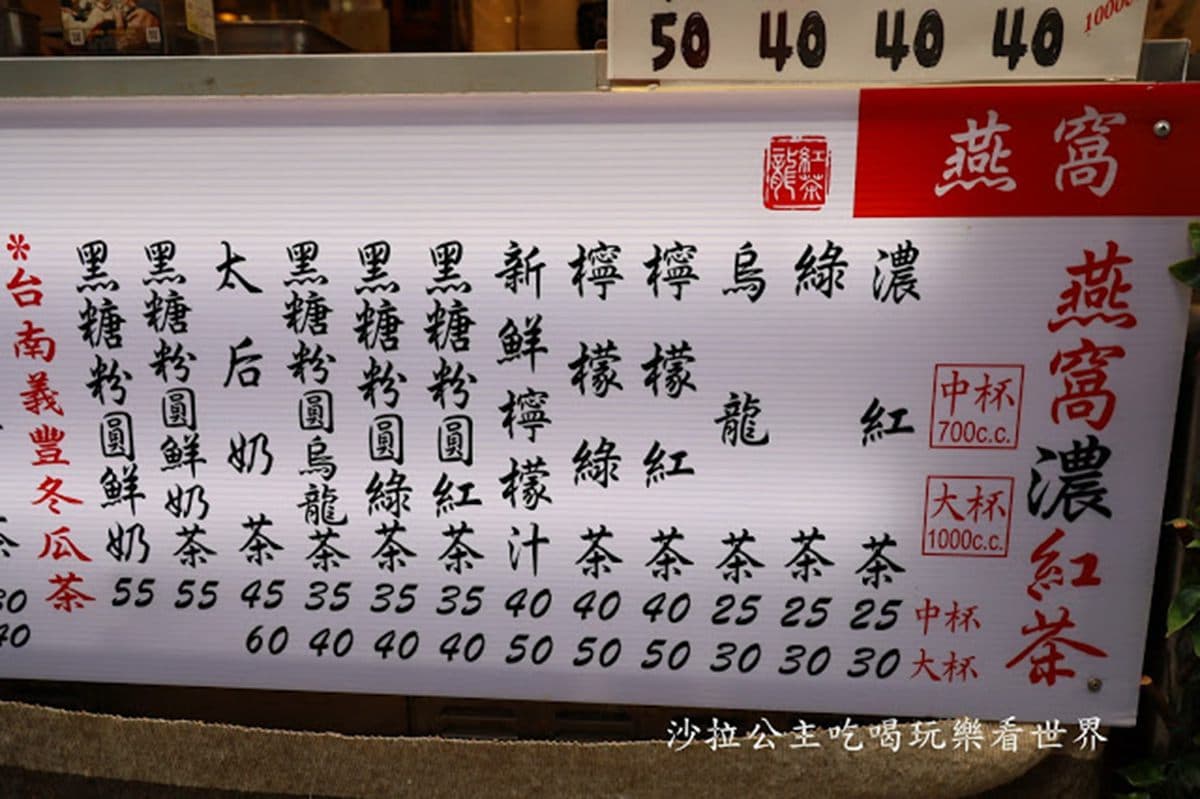 50 40 40 40
1000
燕窩
龍紅茶
燕窩濃紅茶
中杯
700c.c.
大杯
1000c.c.
中杯
大杯
濃紅茶 25 30
綠茶 25 30
烏龍茶 25 30
檸檬紅茶 40 50
檸檬綠茶 40 50
新鮮檸檬汁 40 50
黑糖粉圓紅茶 35 40
黑糖粉圓綠茶 35 40
黑糖粉圓烏龍茶 35 40
太后奶茶 45 60
黑糖粉圓鮮奶茶 55
黑糖粉圓鮮奶 55
*台南義豐冬瓜茶
茶 30 40
沙拉公主吃喝玩樂看世界